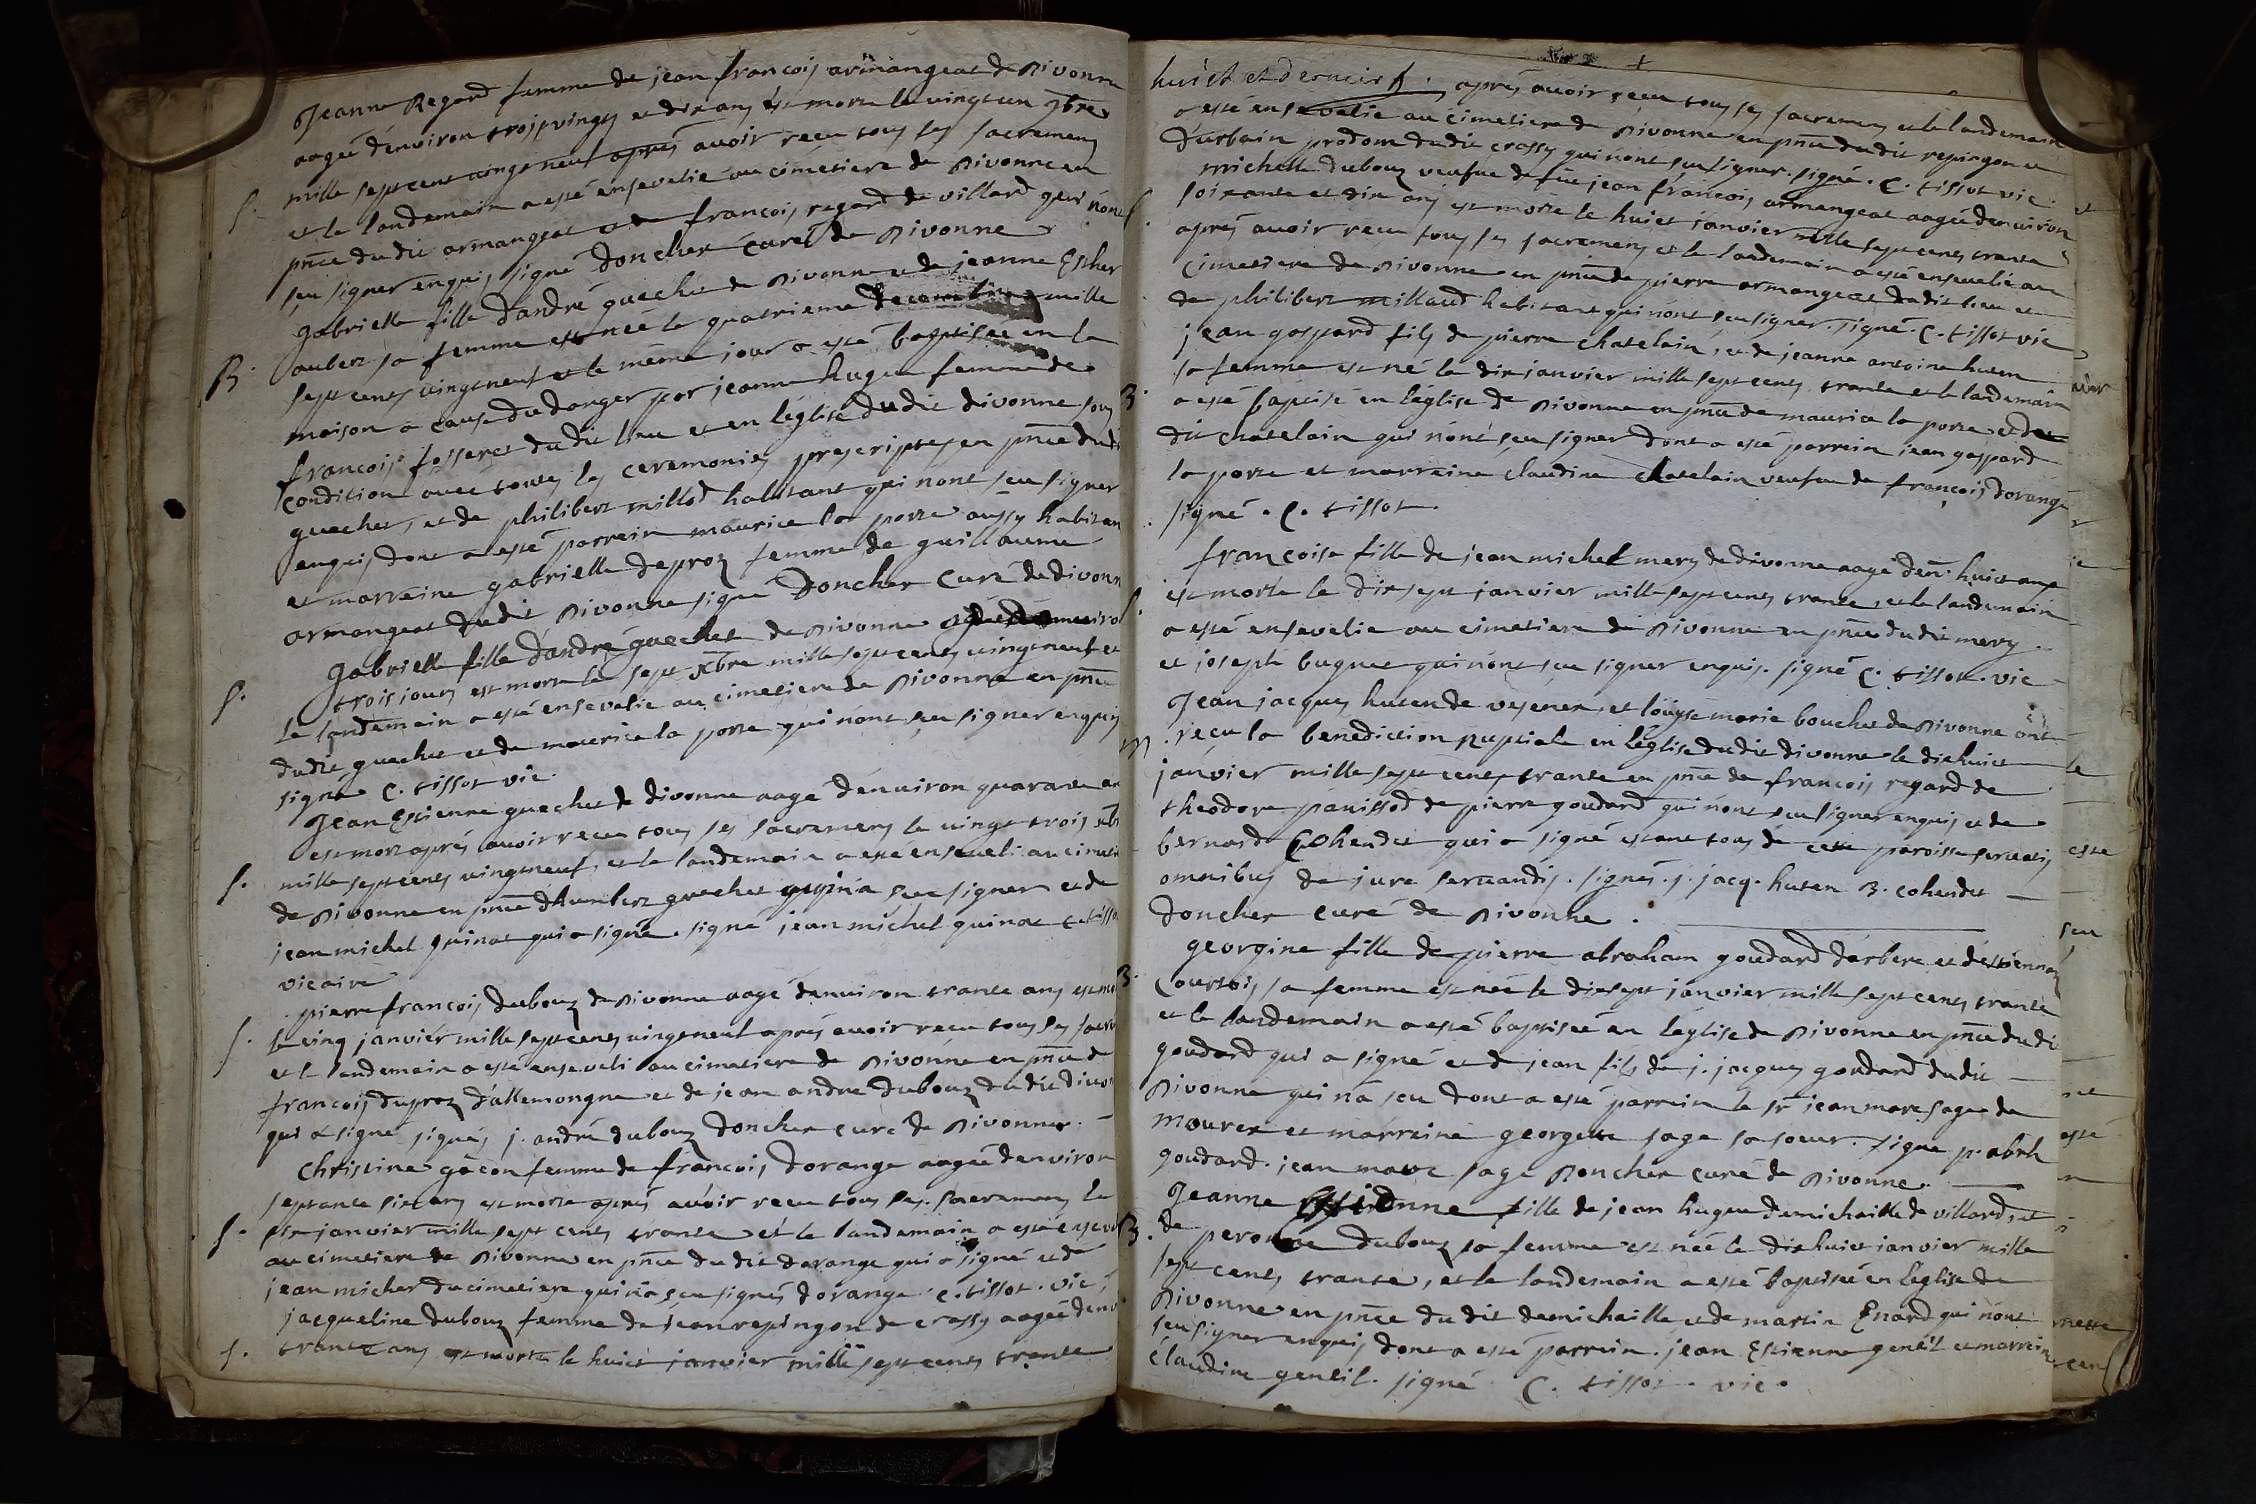 Jeanne Regard femme de jean françois armangeat de Divonne
aagée d'environ trois vingts et dix ans est morte le vingt un 9bre
mille sept cent vingt neuf apres avoir receu tous ses sacremens
S. et le landemain a esté ensevelie au cimetiere de Divonne en
pnce dudit armangeat et de françois regard de villard qui n'ont
sçu signer enquis signé Doncher curé de Divonne
Gabrielle fille d'andré guechet de Divonne et de jeanne Esther
aubert sa femme est née le quatrieme decembre mille
B. sept cents vingt neuf et le même jour a esté baptisée en la
maison a cause du danger par jeanne hugue femme de
françois fosseret dudit lieu et en l'église dudit divonne sous
condition avec toutes les ceremonies prescriptes en pnce dudit
guechet, et de philibert millod habitant qui n'ont sçu signer
enquis dont a esté parrein maurice la porte aussy habitant
et marreine gabrielle deproz femme de guillaume
armangeat dudit Divonne signé Doncher Curé de divonne
Gabrielle fille d'andré guechet de Divonne
S. trois jours est morte le sept xbre mille sept cents vingt neuf et
le landemain a esté ensevelie au cimetiere de Divonne en pnce
dudit guechet et de maurice la porte qui n'ont sçu signer enquis
signé C. tissot vic.
Jean Estienne guechet de divonne aagé d'environ quarante ans
est mort aprés avoir receu tous ses sacremens le vingt trois xbre
S. mille sept cents vingt neuf, et le landemain a esté enseveli au cimetiere
de Divonne en pnce d'humbert guechet qui n'a sçu signer et de
jean michel quinat qui a signé. signé jean michel quinat C tissot
vicaire
pierre françois dubouz de Divonne aagé d'environ trante ans est mort
S. le cinq janvier mille sept cents vingt neuf aprés avoir receu tous ses sacre
et le landemain a esté enseveli au cimetiere de Divonne en pnce de
françois duproz d'allemongne et de jean andré dubouz dudit divonne
qui a signé signés j. andré dubouz Doncher curé de Divonne.
Christine gacon femme de françois dorange aagée d'environ
septante six ans est morte aprés avoir receu tous ses sacremens le
S. six janvier mille sept cents trante et le landemain a esté enseve
au cimetiere de Divonne en pnce dudit dorange qui a signé et de
jean michel ducimetiere qui n'a sçu signés dorange C. tissot. vic.
jacqueline dubouz femme de jean repingon de crassy aagée d'env
S. trante ans est morte le huict janvier mille sept cents trante
huict et dernier. aprés avoir receu tous ses sacremens et le landemain
a esté ensevelie au cimetiere de Divonne en pnce dudit repingon et
d'urbain prodom dudit crassy qui n'ont sçu signer. signé. C. tissot vic.
michelle dubouz veufue de feu jean françois armangeat aagée d'environ
S. soixante et dix ans est morte le huict janvier mille sept cents trante
aprés avoir receu tous ses sacremens et le landemain a esté ensevelie au
cimetiere de Divonne en pnce de pierre armangeat dudit lieu et
de philibert millaud habitant qui n'ont sçu signer. signé. C. tissot vic
jean gaspard fils de pierre chatelain, et de jeanne antoine huten
sa femme est né le dix janvier mille sept cents trante et le landemain
B. a esté baptisé en l'église de Divonne en pnce de maurice la porte et du
dit chatelain qui n'ont sçu signer dont a esté parrein jean gaspard
la porte et marreine claudine chatelain veufue de françois dorange
signé. C. tissot.
françoise fille de jean michel mery de divonne aagé d'en: huict ans
S. est morte le dix sept janvier mille sept cents trante, et le landemain
a esté ensevelie au cimetiere de Divonne en pnce dudit mery
et joseph bugnet qui n'ont sçu signer enquis. signé C. tissot. vic
Jean jacques huten de vesenex et louyse marie bouchet de Divonne ont
M. reçu la benediction nuptiale en l'église dudit divonne le dixhuict
janvier mille sept cents trante en pnce de françois regard de
theodore panissod de pierre goudard qui n'ont sçu signer enquis et de
bernard Cohendet qui a signé estant tous de cette paroisse servatis
omnibus de jure servandis. signés. j. jacq. huten B. cohendet
Doncher curé de Divonne.
georgine fille de pierre abraham goudard d'arbere et d'estiennaz
B. Courtois sa femme est née le dixsept janvier mille sept cents trante
et le landemain a esté baptisée en l'église de Divonne en pnce dudit
goudard qui a signé et d jean fils de j. jacques goudard dudit
Divonne qui n'a sçu dont a esté parrein le sr jean marc sage de
mourex et marreine georgette sage sa soeur. signé p. abrh
goudard. jean marc sage Doncher curé de Divonne.
Jeanne Estienne fille de jean hugue demichaille de villards, et
B. de peronne dubouz sa femme est née le dixhuict janvier mille
sept cents trante, et le landemain a esté baptisée en l'église de
Divonne en pnce du dit demichaille et de martin Enard qui n'ont
sçu signer enquis dont a esté parrein. jean Estienne gentil et marreine
claudine gentil. signé C. tissot. vic.